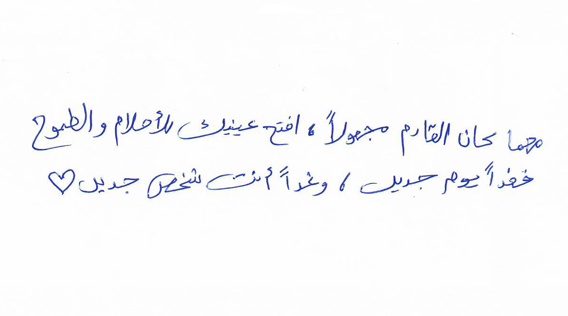 مهما كان القادم مجهولاً، افتح عينيك للأحلام والطموح
فغداً يوم جديد، وغداً أنت شخص جديد ♡